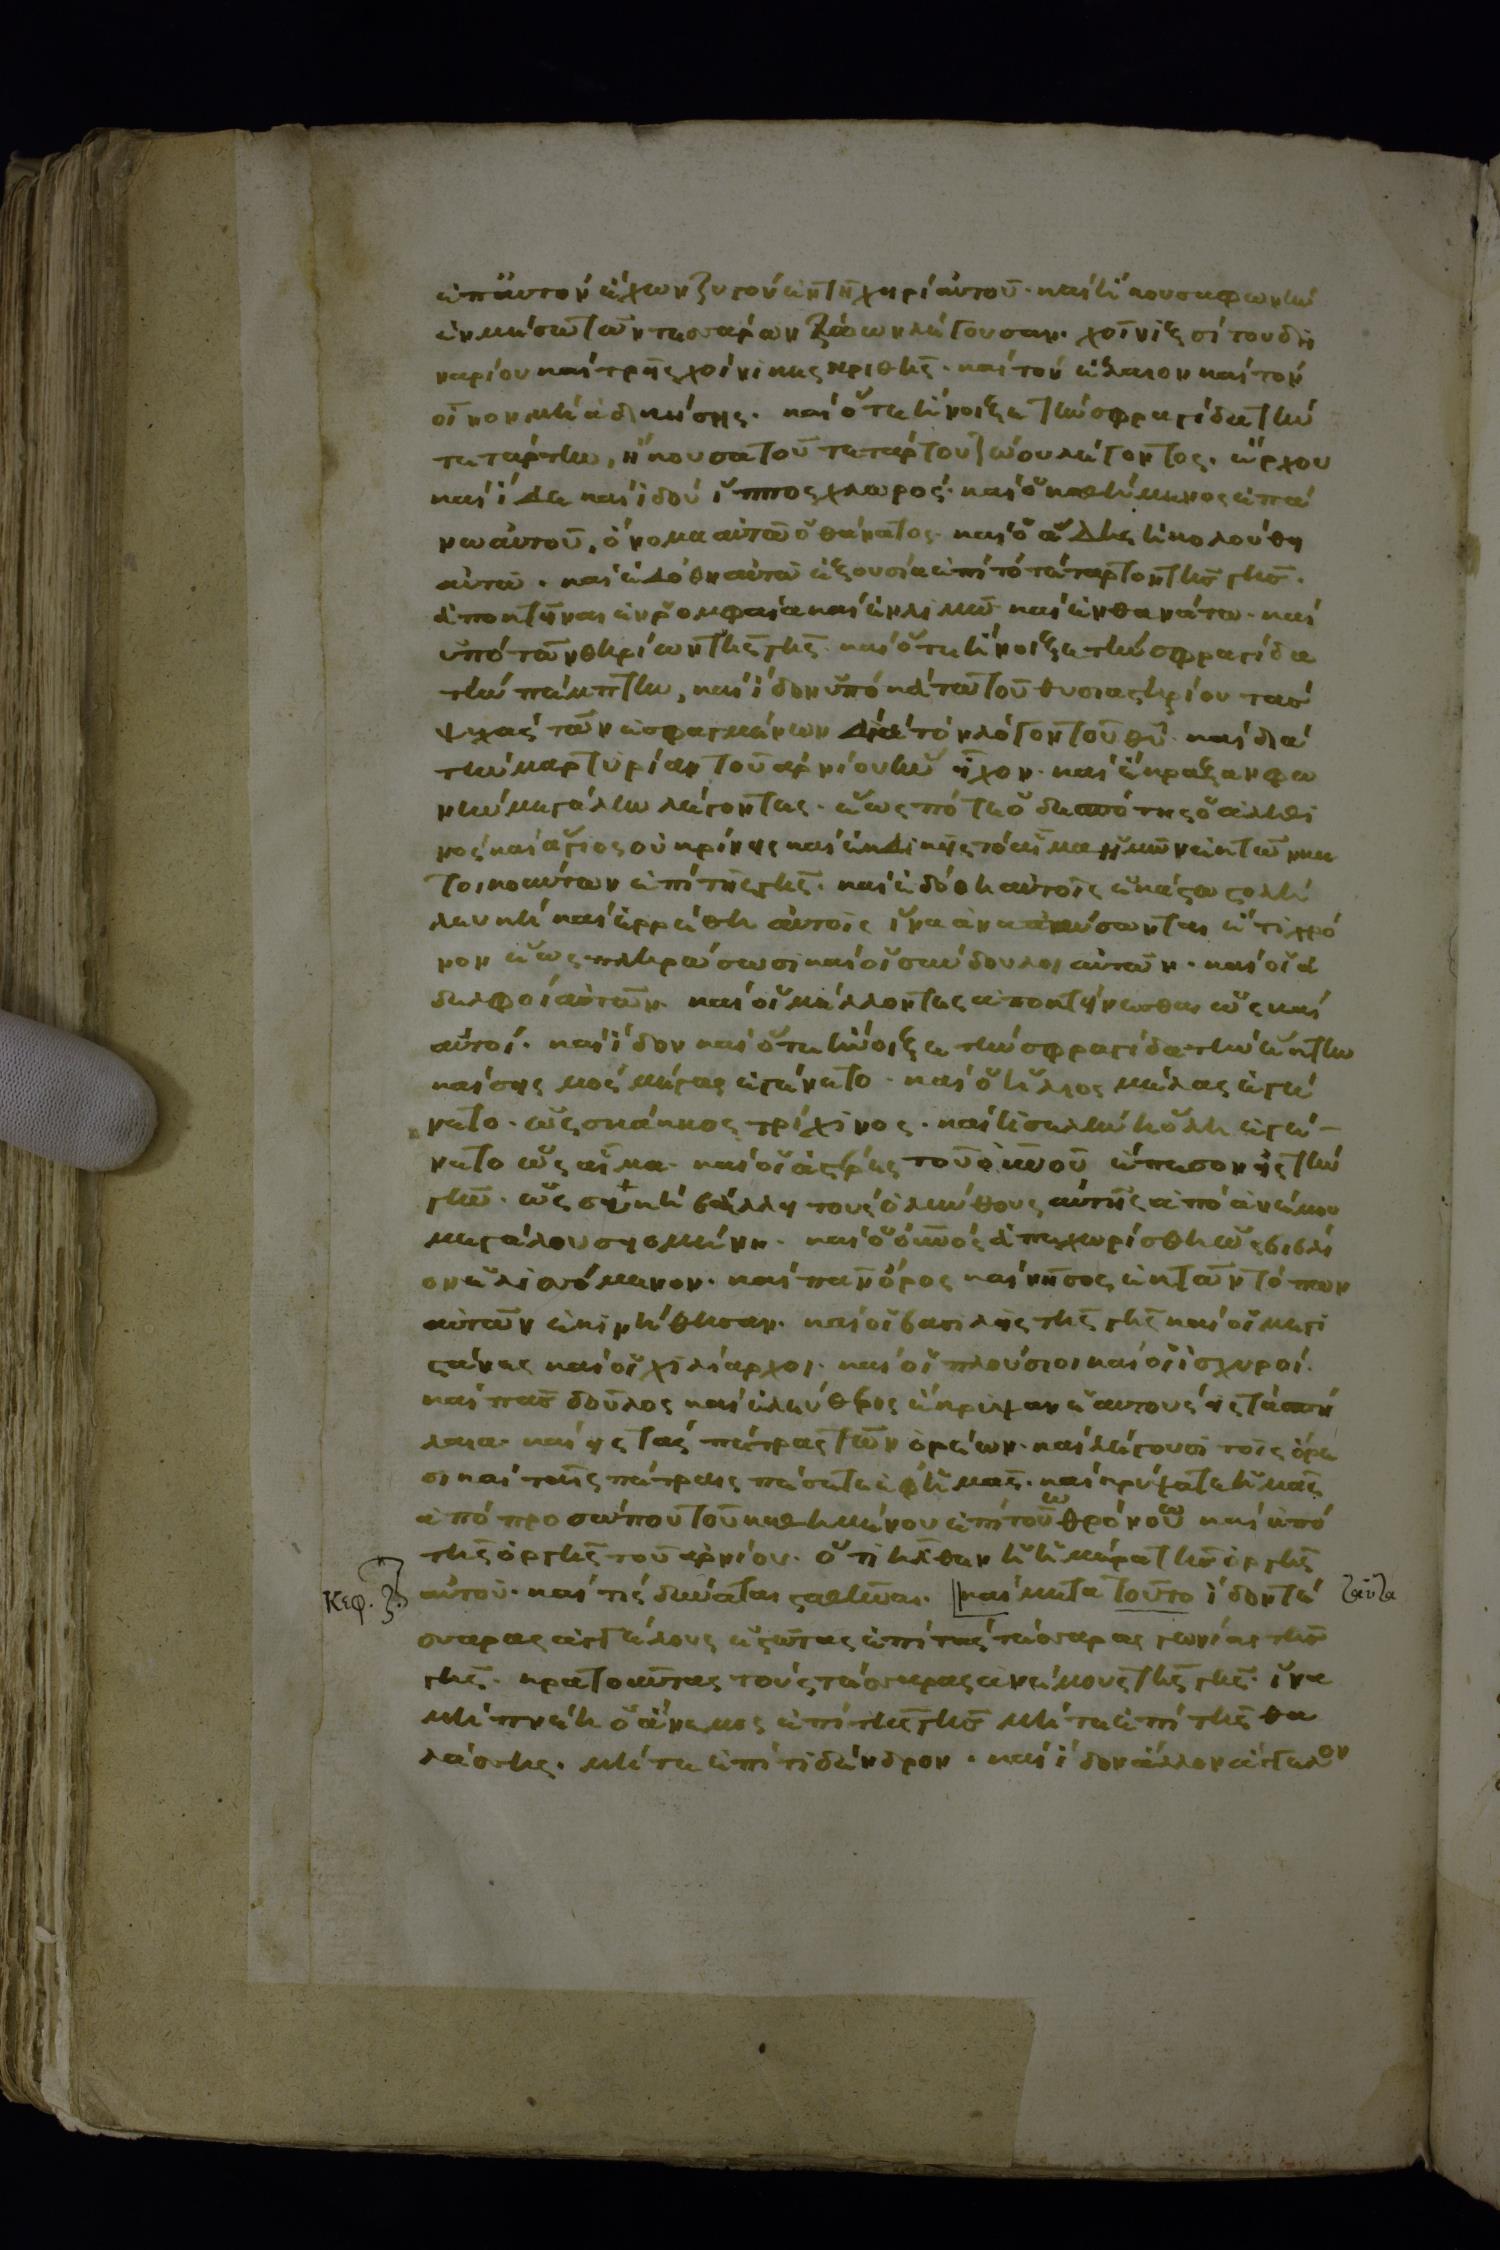 ἐπ' αὐτὸν ἔχων ζυγὸν ἐν τῇ χειρὶ αὐτοῦ· καὶ ἤκουσα φωνὴν
ἐν μέσω τῶν τεσσάρων ζώων λέγουσαν· χοῖνιξ σίτου δη
ναρίου καὶ τρεῖς χοίνικες κριθῆς· καὶ τὸν ἔλαιον καὶ τὸν
οἶνον μὴ ἀδικήσης· καὶ ὅτε ἤνοιξε τὴν σφραγίδα τὴν
τετάρτην, ἤκουσα τοῦ τετάρτου ζώου λέγοντος· ἔρχου
καὶ ἴδε καὶ ἰδοὺ ἵππος χλωρός· καὶ ὁ καθήμενος ἐπά
νω αὐτοῦ, ὄνομα αὐτῶ ὁ θάνατος· καὶ ὁ ἅδης ἠκολούθει
αὐτῶ· καὶ ἐδόθη αὐτῶ ἐξουσία ἐπὶ τὸ τέταρτον τῆς γῆς·
ἀποκτεῖναι ἐν ῥομφαία καὶ ἐν λιμῶ καὶ ἐν θανάτω· καὶ
ὑπὸ τῶν θηρίων τῆς γῆς· καὶ ὅτε ἤνοιξε τὴν σφραγίδα
τὴν πέμπτην, καὶ ἴδον ὑποκάτω τοῦ θυσιαστηρίου τὰσ
ψυχὰς τῶν ἐσφαγμένων διὰ τὸν λόγον τοῦ θῦ· καὶ διὰ
τὴν μαρτυρίαν τοῦ ἀρνίου ἣν εἶχον· καὶ ἔκραξαν φω
νὴν μεγάλην λέγοντες· ἕως πότε ὁ δεσπότης ὁ ἀληθι
νὸς καὶ ἅγιος οὐ κρίνεις καὶ ἐκδικεῖς τὸ αἷμα ἡμῶν ἐκ τῶν κα
τοικούντων ἐπὶ τῆς γῆς· καὶ ἐδόθη αὐτοῖς ἑκάστω στολὴ
λευκὴ καὶ ἐρρέθη αὐτοῖς ἵνα ἀναπαύσωνται ἔτι χρό
νον ἕως πληρώσωσι καὶ οἱ σύνδουλοι αὐτῶν· καὶ οἱ ἀ
δελφοὶ αὐτῶν· καὶ οἱ μέλλοντες ἀποκτείνεσθαι ὡς καὶ
αὐτοί· καὶ ἴδον καὶ ὅτε ἤνοιξε τὴν σφραγίδα τὴν ἕκτην
καὶ σεισμὸς μέγας ἐγένετο· καὶ ὁ ἥλιος μέλας ἐγέ
νετο· ὡς σάκκος τρίχινος· καὶ ἡ σελήνη ὅλη ἐγέ-
νετο ὡς αἷμα· καὶ οἱ ἀστέρες τοῦ οὐνοῦ ἔπεσον εἰς τὴν
γῆν· ὡς συκῆ βάλλει τοὺς ὀλύνθους αὐτῆς ἀπὸ ἀνέμου
μεγάλου σειομένη· καὶ ὁ οὐνὸς ἀπεχωρίσθη ὡς βιβλί
ον ἑλισσόμενον· καὶ πᾶν ὄρος καὶ νῆσος ἐκ τῶν τόπων
αὐτῶν ἐκινήθησαν· καὶ οἱ βασιλεῖς τῆς γῆς καὶ οἱ μεγι
στάνες καὶ οἱ χιλίαρχοι· καὶ οἱ πλούσιοι καὶ οἱ ἰσχυροί·
καὶ πᾶς δοῦλος καὶ ἐλεύθερος ἔκρυψαν ἑαυτοὺς εἰς τὰ σπή
λαια· καὶ εἰς τὰς πέτρας τῶν ὀρέων· καὶ λέγουσι τοῖς ὄρε
σι καὶ ταῖς πέτραις πέσετε ἐφ' ἡμᾶς· καὶ κρύψατε ἡμᾶς
ἀπὸ προσώπου τοῦ καθημένου ἐπὶ τοῦ θρόνου καὶ ἀπὸ
τῆς ὀργῆς τοῦ ἀρνίου· ὅτι ἦλθεν ἡ ἡμέρα τῆς ὀργῆς
Κεφ. ζ. αὐτοῦ· καὶ τίς δύναται σταθῆναι· καὶ μετὰ τοῦτο ἴδον τέ ταῦτα
σσαρας ἀγγέλους ἑστῶτας ἐπὶ τὰς τέσσαρας γωνίας τῆς
γῆς· κρατοῦντας τοὺς τέσσαρας ἀνέμους τῆς γῆς· ἵνα
μὴ πνέη ὁ ἄνεμος ἐπὶ τῆς γῆς μήτε ἐπὶ τῆς θα
λάσσης· μήτε ἐπί τι δένδρον· καὶ ἴδον ἄλλον ἄγγελον